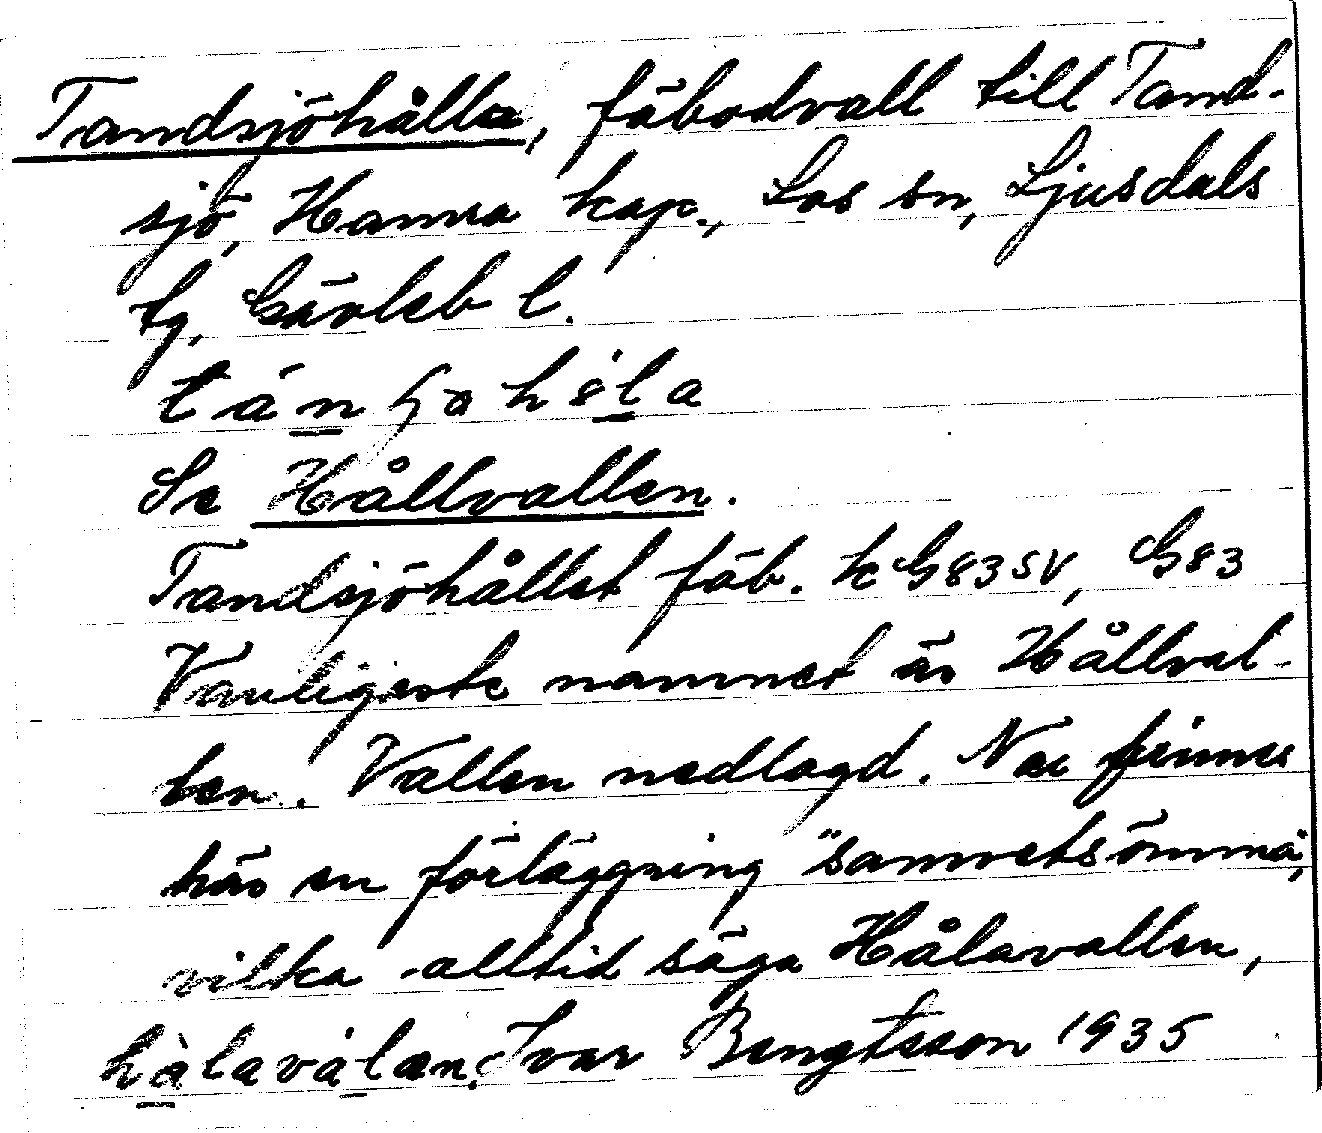 Tandsjöhålla, fäbodvall till Tand-
sjö, Hamra kap., Los sn, Ljusdals
tg, Gävleb l.
Se Hållvallen.
Tandsjöhållet fäb. k G83SV, G83
Vanligaste namnet är Hållval-
len. Vallen nedlagd. Nu finnes
här en förläggning "samvetsömma",
vilka alltid säga Hålavallen,
hàlaválan. Ivar Bengtsson 1935